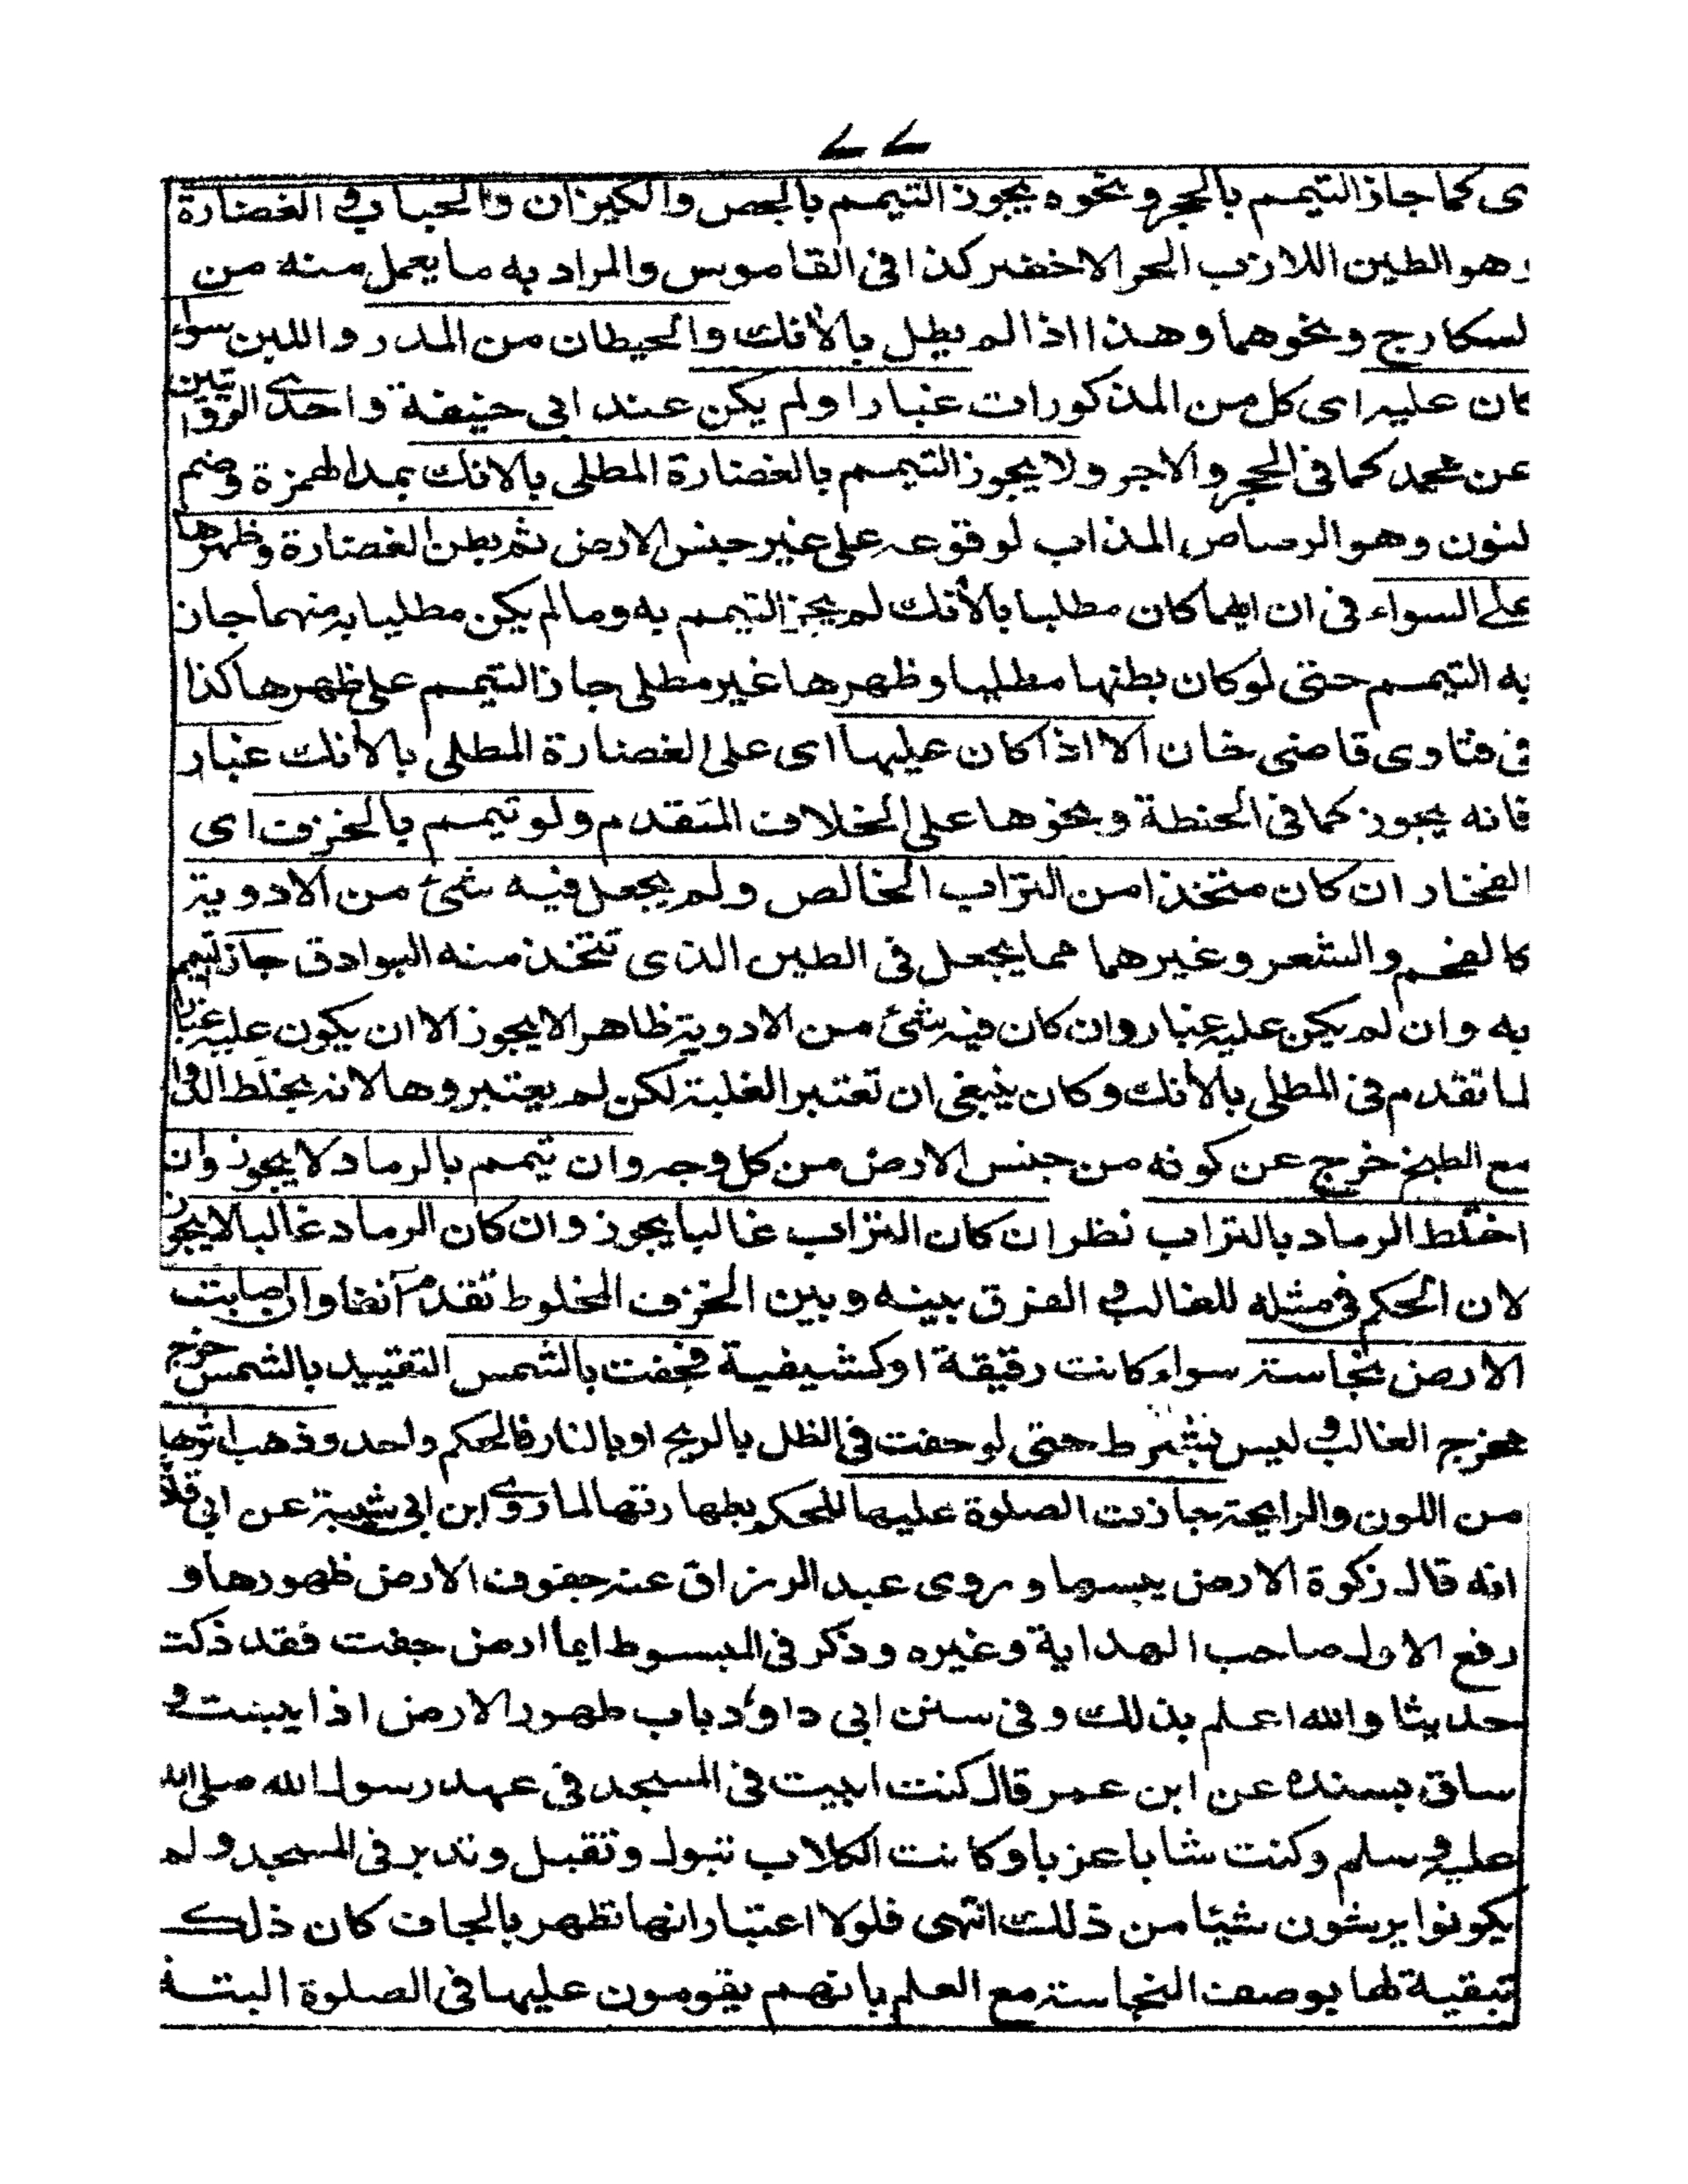 ٧٧
ى كما جاز التيمم بالحجر ونحوه يجوز التيمم بالجص والكيزان والحباب و الغضارة
وهو الطين اللازب الحر الاخضر كذا فى القاموس والمراد به ما يعمل منه من
لسكارج ونحوهما وهذا اذا لم يطل بالأنك والحيطان من المدر واللبن سواء
كان عليه اى كل من المذكورات غبارا ولم يكن عند ابى حنيفة واحدى الروايتين
عن محمد كما فى الحجر والاجر ولا يجوز التيمم بالغضارة المطلى بالانك بمد الهمزة وضم
لنون وهو الرصاص المذاب لوقوعه على غير جنس الارض ثم بطن الغضارة وظهرها
على السواء فى ان ايهما كان مطليا بالأنك لم يجز التيمم به وما لم يكن مطليا به منهما جاز
به التيمم حتى لو كان بطنها مطليا وظهرها غير مطلى جاز التيمم على ظهرها كذا
فى فتاوى قاضى خان الا اذا كان عليها اى على الغضارة المطلى بالأنك غبار
فانه يجوز كما فى الحنطة ونحوها على الخلاف المتقدم ولو تيمم بالخزف اى
الفخار ان كان متخذا من التراب الخالص ولم يجعل فيه شئ من الادوية
كالفحم والشعر وغيرهما مما يجعل فى الطين الذى تتخذ منه البوادق جاز التيمم
به وان لم يكن عليه غبار وان كان فيه شئ من الادوية ظاهر الا يجوز الا ان يكون عليه غبار
لما تقدم فى المطلى بالأنك وكان ينبغى ان تعتبر الغلبة لكن لم يعتبروها لانه بخلط الدواء
مع الطبخ خرج عن كونه من جنس الارض من كل وجه وان تيمم بالرماد لا يجوز وان
اختلط الرماد بالتراب نظر ان كان التراب غالبا يجوز وان كان الرماد غالبا لا يجوز
لان الحكم فى مثله للغالب و الفرق بينه وبين الخزف المخلوط تقدم آنفا وان اصابت
الارض نجاسة سواء كانت رقيقة او كشيفية فجفت بالشمس التقييد بالشمس خرج
مخرج الغالب و ليس بشرط حتى لو جفت فى الظل بالريح او بالنار فالحكم واحد وذهب اثرها
من اللون والرايحة جازت الصلوة عليها للحكم بطهارتها لما روى ابن ابى شيبة عن ابى قلابة
انه قال زكوة الارض يبسها وروى عبد الرزاق عنه جفوف الارض طهورها و
رفع الاول صاحب الهداية وغيره وذكر فى المبسوط ايما ارض جفت فقد ذكت
حديثا والله اعلم بذلك وفى سنن ابى داؤد باب طهور الارض اذا يبست و
ساق بسنده عن ابن عمر قال كنت ابيت فى المسجد فى عهد رسول الله صلى الله
عليه و سلم وكنت شابا عزبا وكانت الكلاب تبول وتقبل وتدبر فى المسجد ولم
يكونوا يرشون شيئا من ذلك انتهى فلولا اعتبار انها تطهر بالجاف كان ذلك
تبقية لها بوصف النجاسة مع العلم بانهم يقومون عليها فى الصلوة البتة